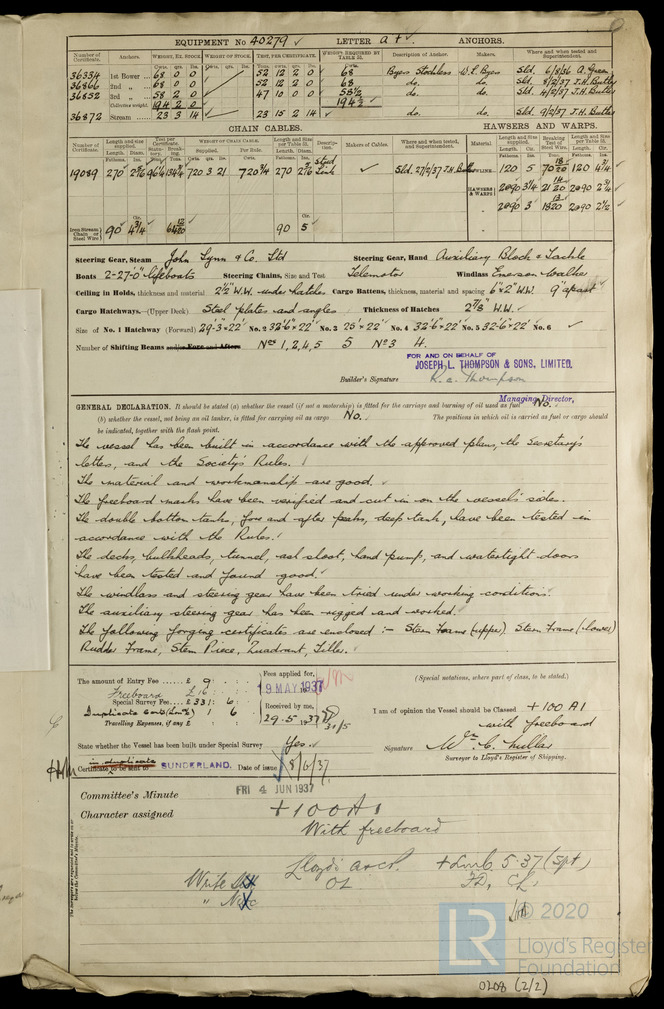 EQUIPMENT No 40279 ✓ LETTER a † ✓. ANCHORS.
Number of Certificate. Anchors. WEIGHT, EX. STOCK. WEIGHT OF STOCK. TEST, PER CERTIFICATE. WEIGHT REQUIRED BY TABLE 31. Description of Anchor. Makers. Where and when tested and Superintendent.
36334 1st Bower 68 0 0 52 12 2 0 68 Byers Stockless W. L. Byers Sld. 6/8/36 A. Green
36866 2nd „ 68 0 0 52 12 2 0 68 do. do. Sld. 8/2/37 J.H. Butler
36852 3rd „ 58 2 0 47 10 0 0 58½ do. do. Sld. 4/2/37 J.H. Butler
Collective weight. 194 2 0 194½
36872 Stream 23 3 14 23 15 2 14 do. do. Sld. 9/2/37 J.H. Butler
CHAIN CABLES. HAWSERS AND WARPS.
Number of Certificate. Length and size supplied. Test per Certificate. WEIGHT OF CHAIN CABLE. Length and Size per Table 31. Description. Makers of Cables. Where and when tested, and Superintendent. Material. Length and size supplied. Breaking Test of Steel Wire. Length and Size per Table 31.
19089 270 720 3 21 720¾ 270 Stud Link ✓ Sld. 27/2/37 J.H. Butler TOWLINE 120 5 120
HAWSERS & WARPS 2@90 3¼ 2@90 2¾
2@90 3 2@90 2½
Iron Stream Chain or Steel Wire 90 90 5
Steering Gear, Steam John Lynn & Co. Ltd Steering Gear, Hand Auxiliary Block & Tackle
Boats 2-27'-0" lifeboats Steering Chains, Size and Test Telemotor Windlass Emerson Walker
Ceiling in Holds, thickness and material 2½" W.W. under hatches Cargo Battens, thickness, material and spacing 6"x2" W.W. 9" apart
Cargo Hatchways.—(Upper Deck) Steel plates and angles Thickness of Hatches 2⅞" W.W.
Size of No. 1 Hatchway (Forward) 29'-3"x22' No. 2 32'6"x22' No. 3 25'x22' No. 4 32'6"x22' No. 5 32'-6"x22' No. 6 ✓
Number of Shifting Beams and/or Fore and Afters Nos 1, 2, 4, 5 5 No 3 4.
FOR AND ON BEHALF OF
JOSEPH L. THOMPSON & SONS, LIMITED.
Builder's Signature R. C. Thompson
Managing Director,
GENERAL DECLARATION. It should be stated (a) whether the vessel (if not a motorship) is fitted for the carriage and burning of oil used as fuel No.
(b) whether the vessel, not being an oil tanker, is fitted for carrying oil as cargo No. The positions in which oil is carried as fuel or cargo should
be indicated, together with the flash point.
The vessel has been built in accordance with the approved plans, the Secretary's
letters, and the Society's Rules.
The material and workmanship are good.
The freeboard marks have been verified and cut in on the vessel's sides.
The double bottom tanks, fore and after peaks, deep tank, have been tested in
accordance with the Rules.
The decks, bulkheads, tunnel, ash shoot, hand pump, and watertight doors
have been tested and found good.
The windlass and steering gear have been tried under working conditions.
The auxiliary steering gear has been rigged and worked.
The following forging certificates are enclosed :- Stern Frame (upper), Stern Frame (lower)
Rudder Frame, Stem Piece, Quadrant, Tiller.
The amount of Entry Fee £ 9 : : Fees applied for, (Special notations, where part of class, to be stated.)
Freeboard £16 19 MAY 1937
Special Survey Fee £ 331 : 6 : Received by me,
Duplicate 1 6 29.5.1937 31/5
Travelling Expenses, if any £
I am of opinion the Vessel should be Classed +100 A1
with freeboard
State whether the Vessel has been built under Special Survey Yes.
Signature Wm. C. Millar
Surveyor to Lloyd's Register of Shipping.
in duplicate
Certificate to be sent to SUNDERLAND. Date of issue 8/6/37
Committee's Minute FRI 4 JUN 1937
Character assigned +100A1
With freeboard
Lloyds A&CP. +LMC 5.37 (Spt)
OL FD, CL
Write
„
© 2020
LR Lloyd's Register
Foundation
0208 (2/2)